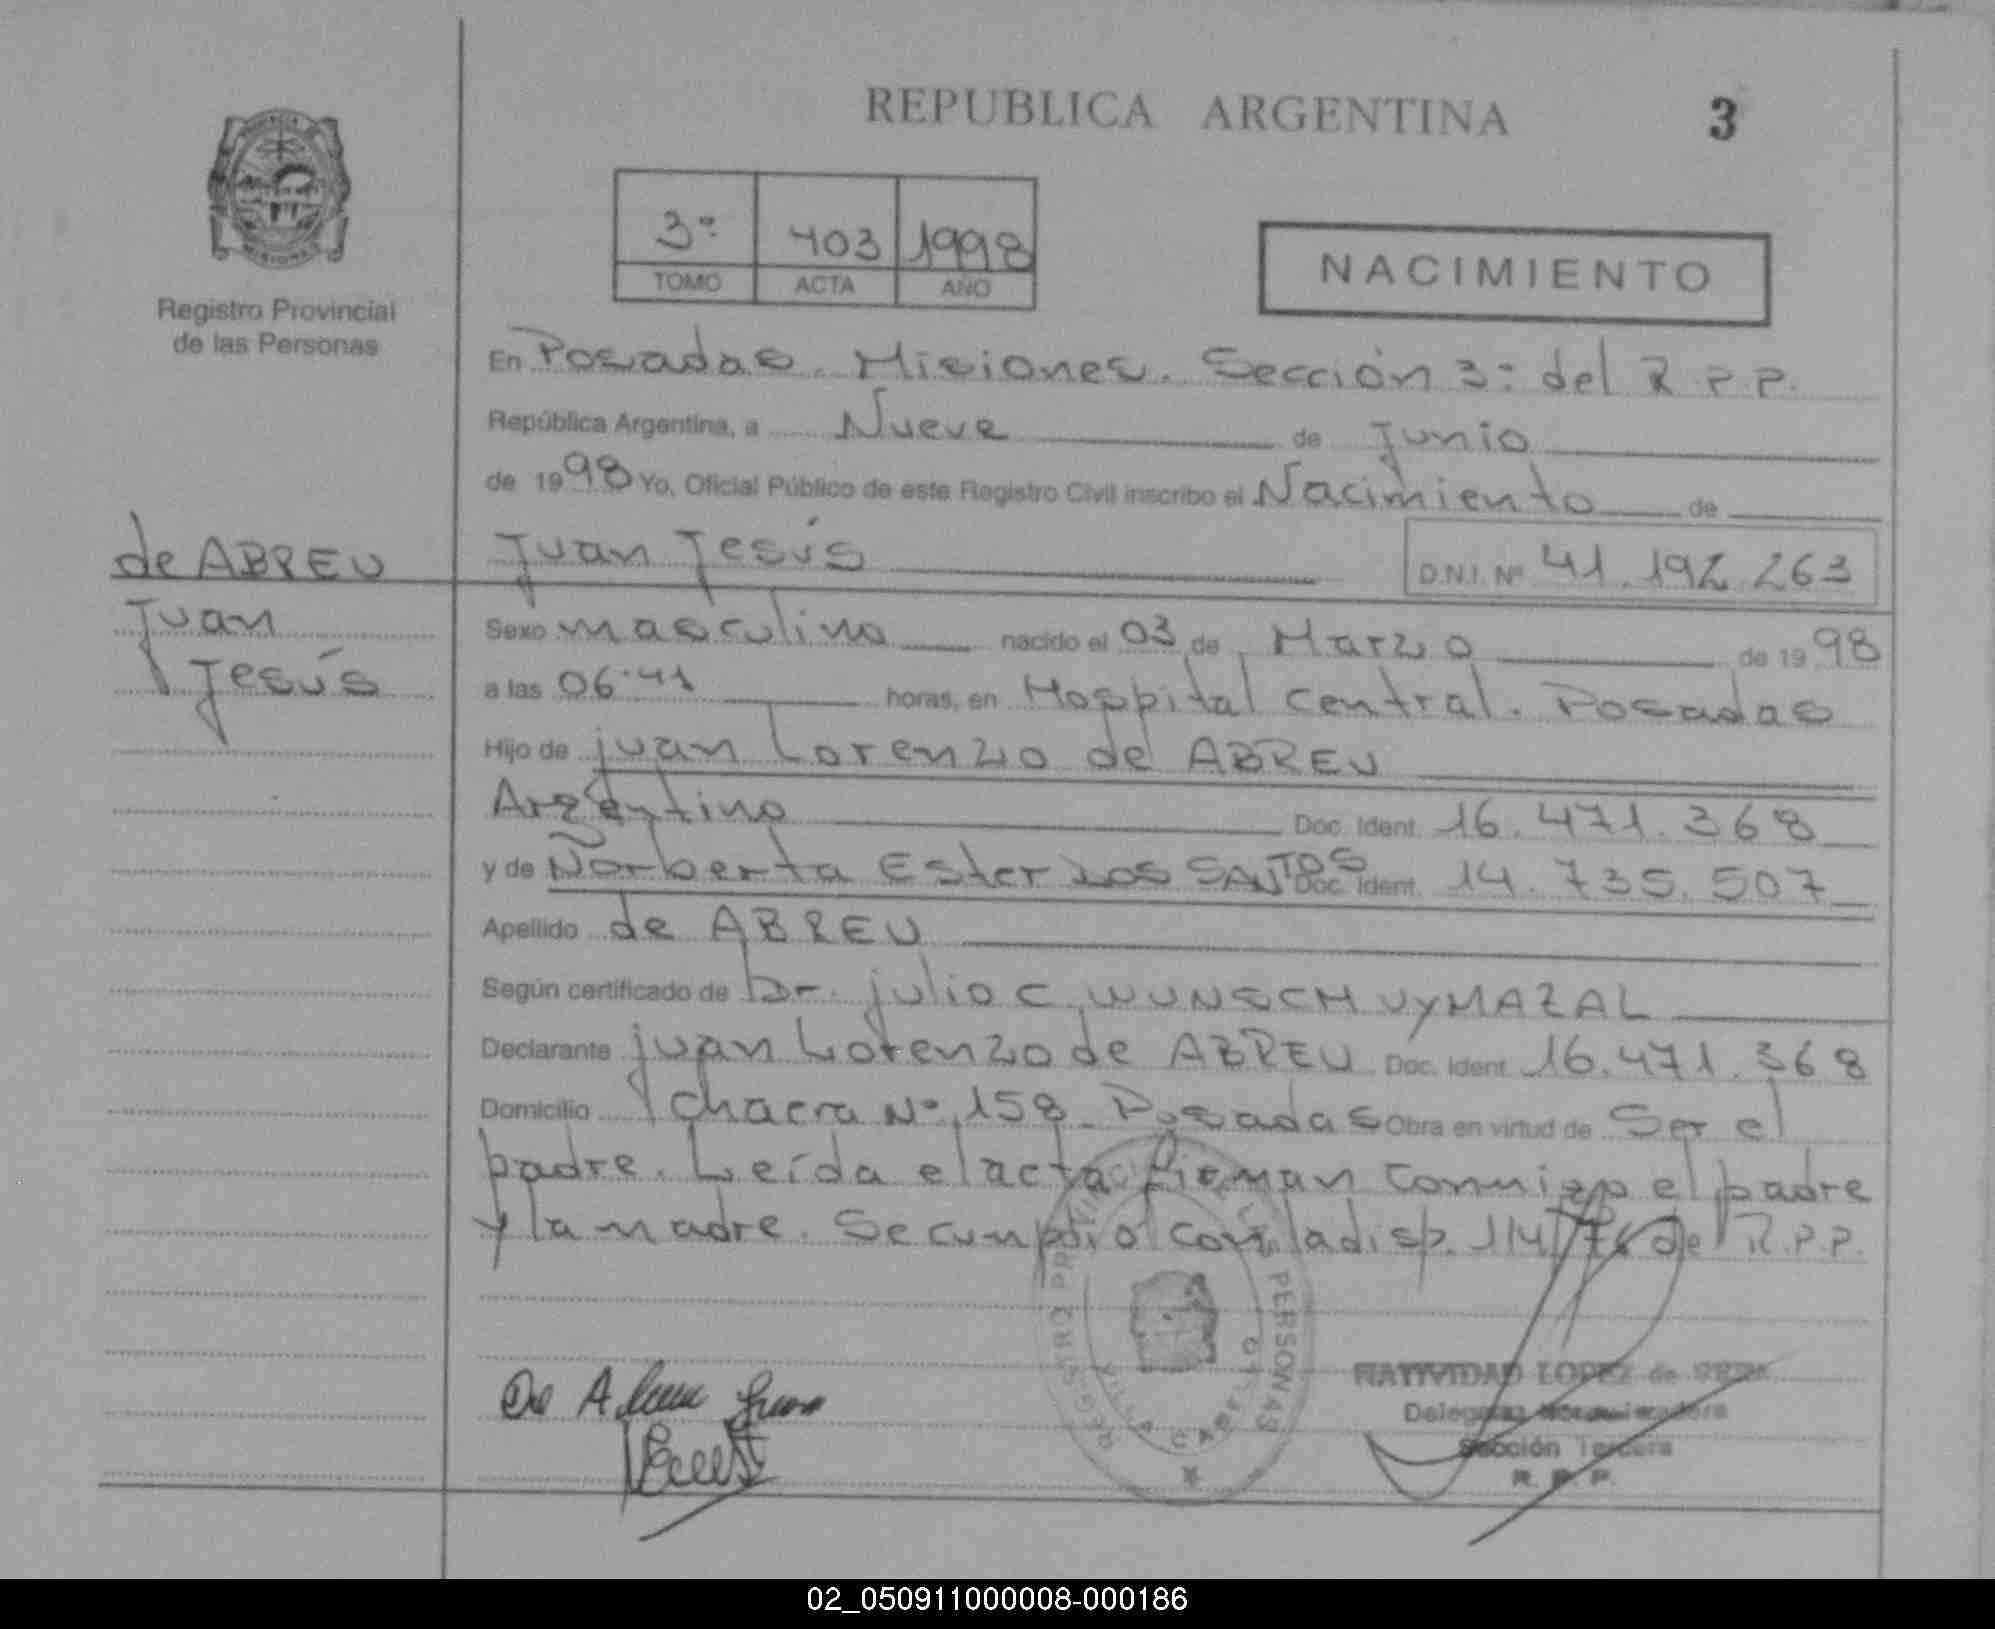 REPUBLICA ARGENTINA 3
3ª 403 1998
TOMO ACTA AÑO
NACIMIENTO
Registro Provincial
de las Personas
En Posadas. Misiones. Sección 3ª del R.P.P.
República Argentina, a Nueve de Junio
de 1998 Yo, Oficial Público de este Registro Civil inscribo el Nacimiento de
de ABREU
Juan
Jesús
Juan Jesús D.N.I. Nº 41.192.263
Sexo masculino nacido el 03 de Marzo de 1998
a las 06:41 horas, en Hospital Central. Posadas
Hijo de Juan Lorenzo de ABREU
Argentino Doc. Ident. 16.471.368
y de Norberta Ester DOS SANTOS Doc. Ident. 14.735.507
Apellido de ABREU
Según certificado de Dr. Julio C WUNSCH VYMAZAL
Declarante Juan Lorenzo de ABREU Doc. Ident. 16.471.368
Domicilio Chacra Nº 158 Posadas Obra en virtud de Ser el
padre. Leída el acta firman conmigo el padre
y la madre. Se cumplió con la disp. 114/76 del R.P.P.
REGISTRO PROVINCIAL DE LAS PERSONAS
VILLA CABELLO
De Abreu Juan
NATIVIDAD LOPEZ de
Delegada
Sección Tercera
R. P. P.
02_050911000008-000186